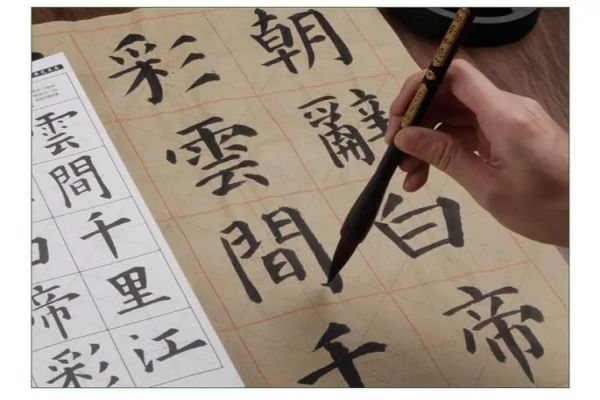 朝辭白帝
彩雲間千
帝彩
雲間千里江